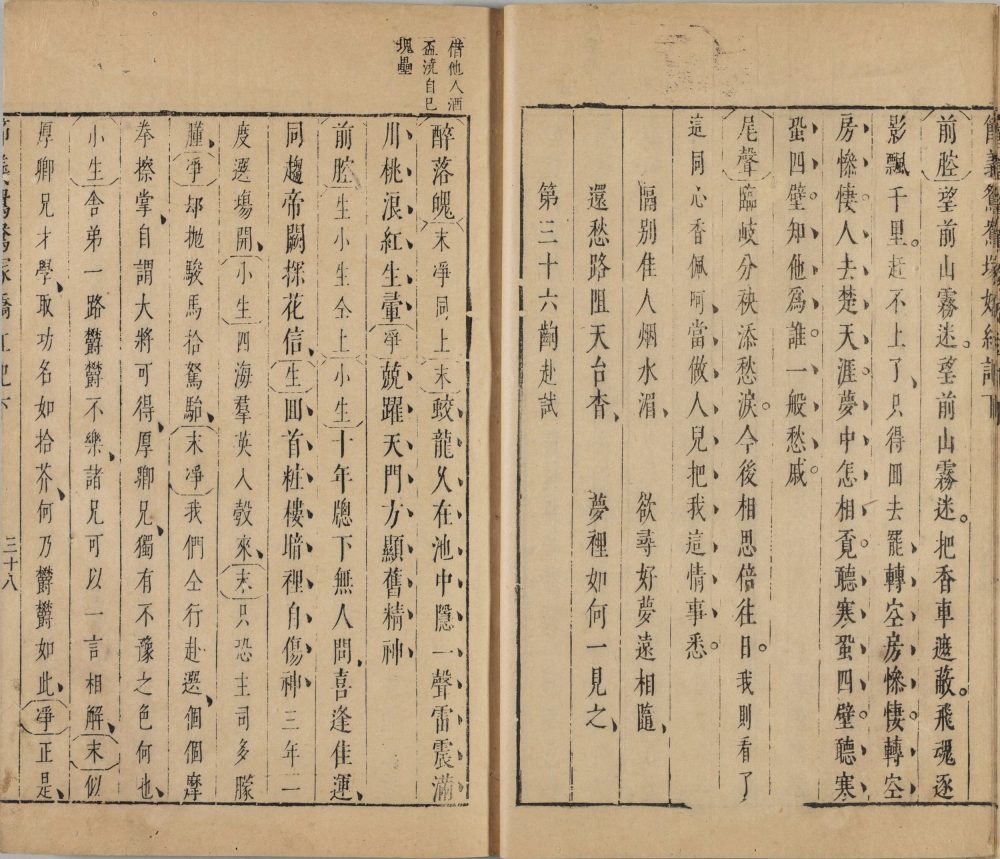 節義鴛鴦塚嬌紅記下
前腔望前山霧迷。望前山霧迷。把香車遮蔽。飛魂逐
影飄千里。赶不上了、只得囬去罷、轉空房慘悽、轉空
房慘悽、人去楚天涯、夢中怎相覓、聽寒蛩四壁。聽寒
蛩四壁。知他爲誰。一般愁戚
尾聲臨岐分袂添愁淚。今後相思倍往日。我則看了
這同心香佩呵、當做人兒把我這情事悉。
隔別佳人烟水湄、　欲尋好夢遠相隨、
還愁路阻天台杳、　夢裡如何一見之、
第三十六齣赴試
借他人酒
盃澆自己
塊壘
醉落魄末淨同上末蛟龍久在池中隱、一聲雷震滿
川桃浪紅生暈淨兢躍天門方顯舊精神
前腔生小生仝上小生十年牕下無人問、喜逢佳運、
同趨帝闕探花信、生囬首粧樓、暗裡自傷神三年一
度選塲開、小生四海羣英入彀來、末只恐主司多朦
朣、淨却抛駿馬拾駑駘、末淨我們仝行赴選、個個摩
拳擦掌、自謂大將可得、厚卿兄、獨有不豫之色何也、
小生舍弟一路欝欝不樂、諸兄可以一言相解、末似
厚卿兄才學、取功名如拾芥、何乃欝欝如此、淨正是、
三十八